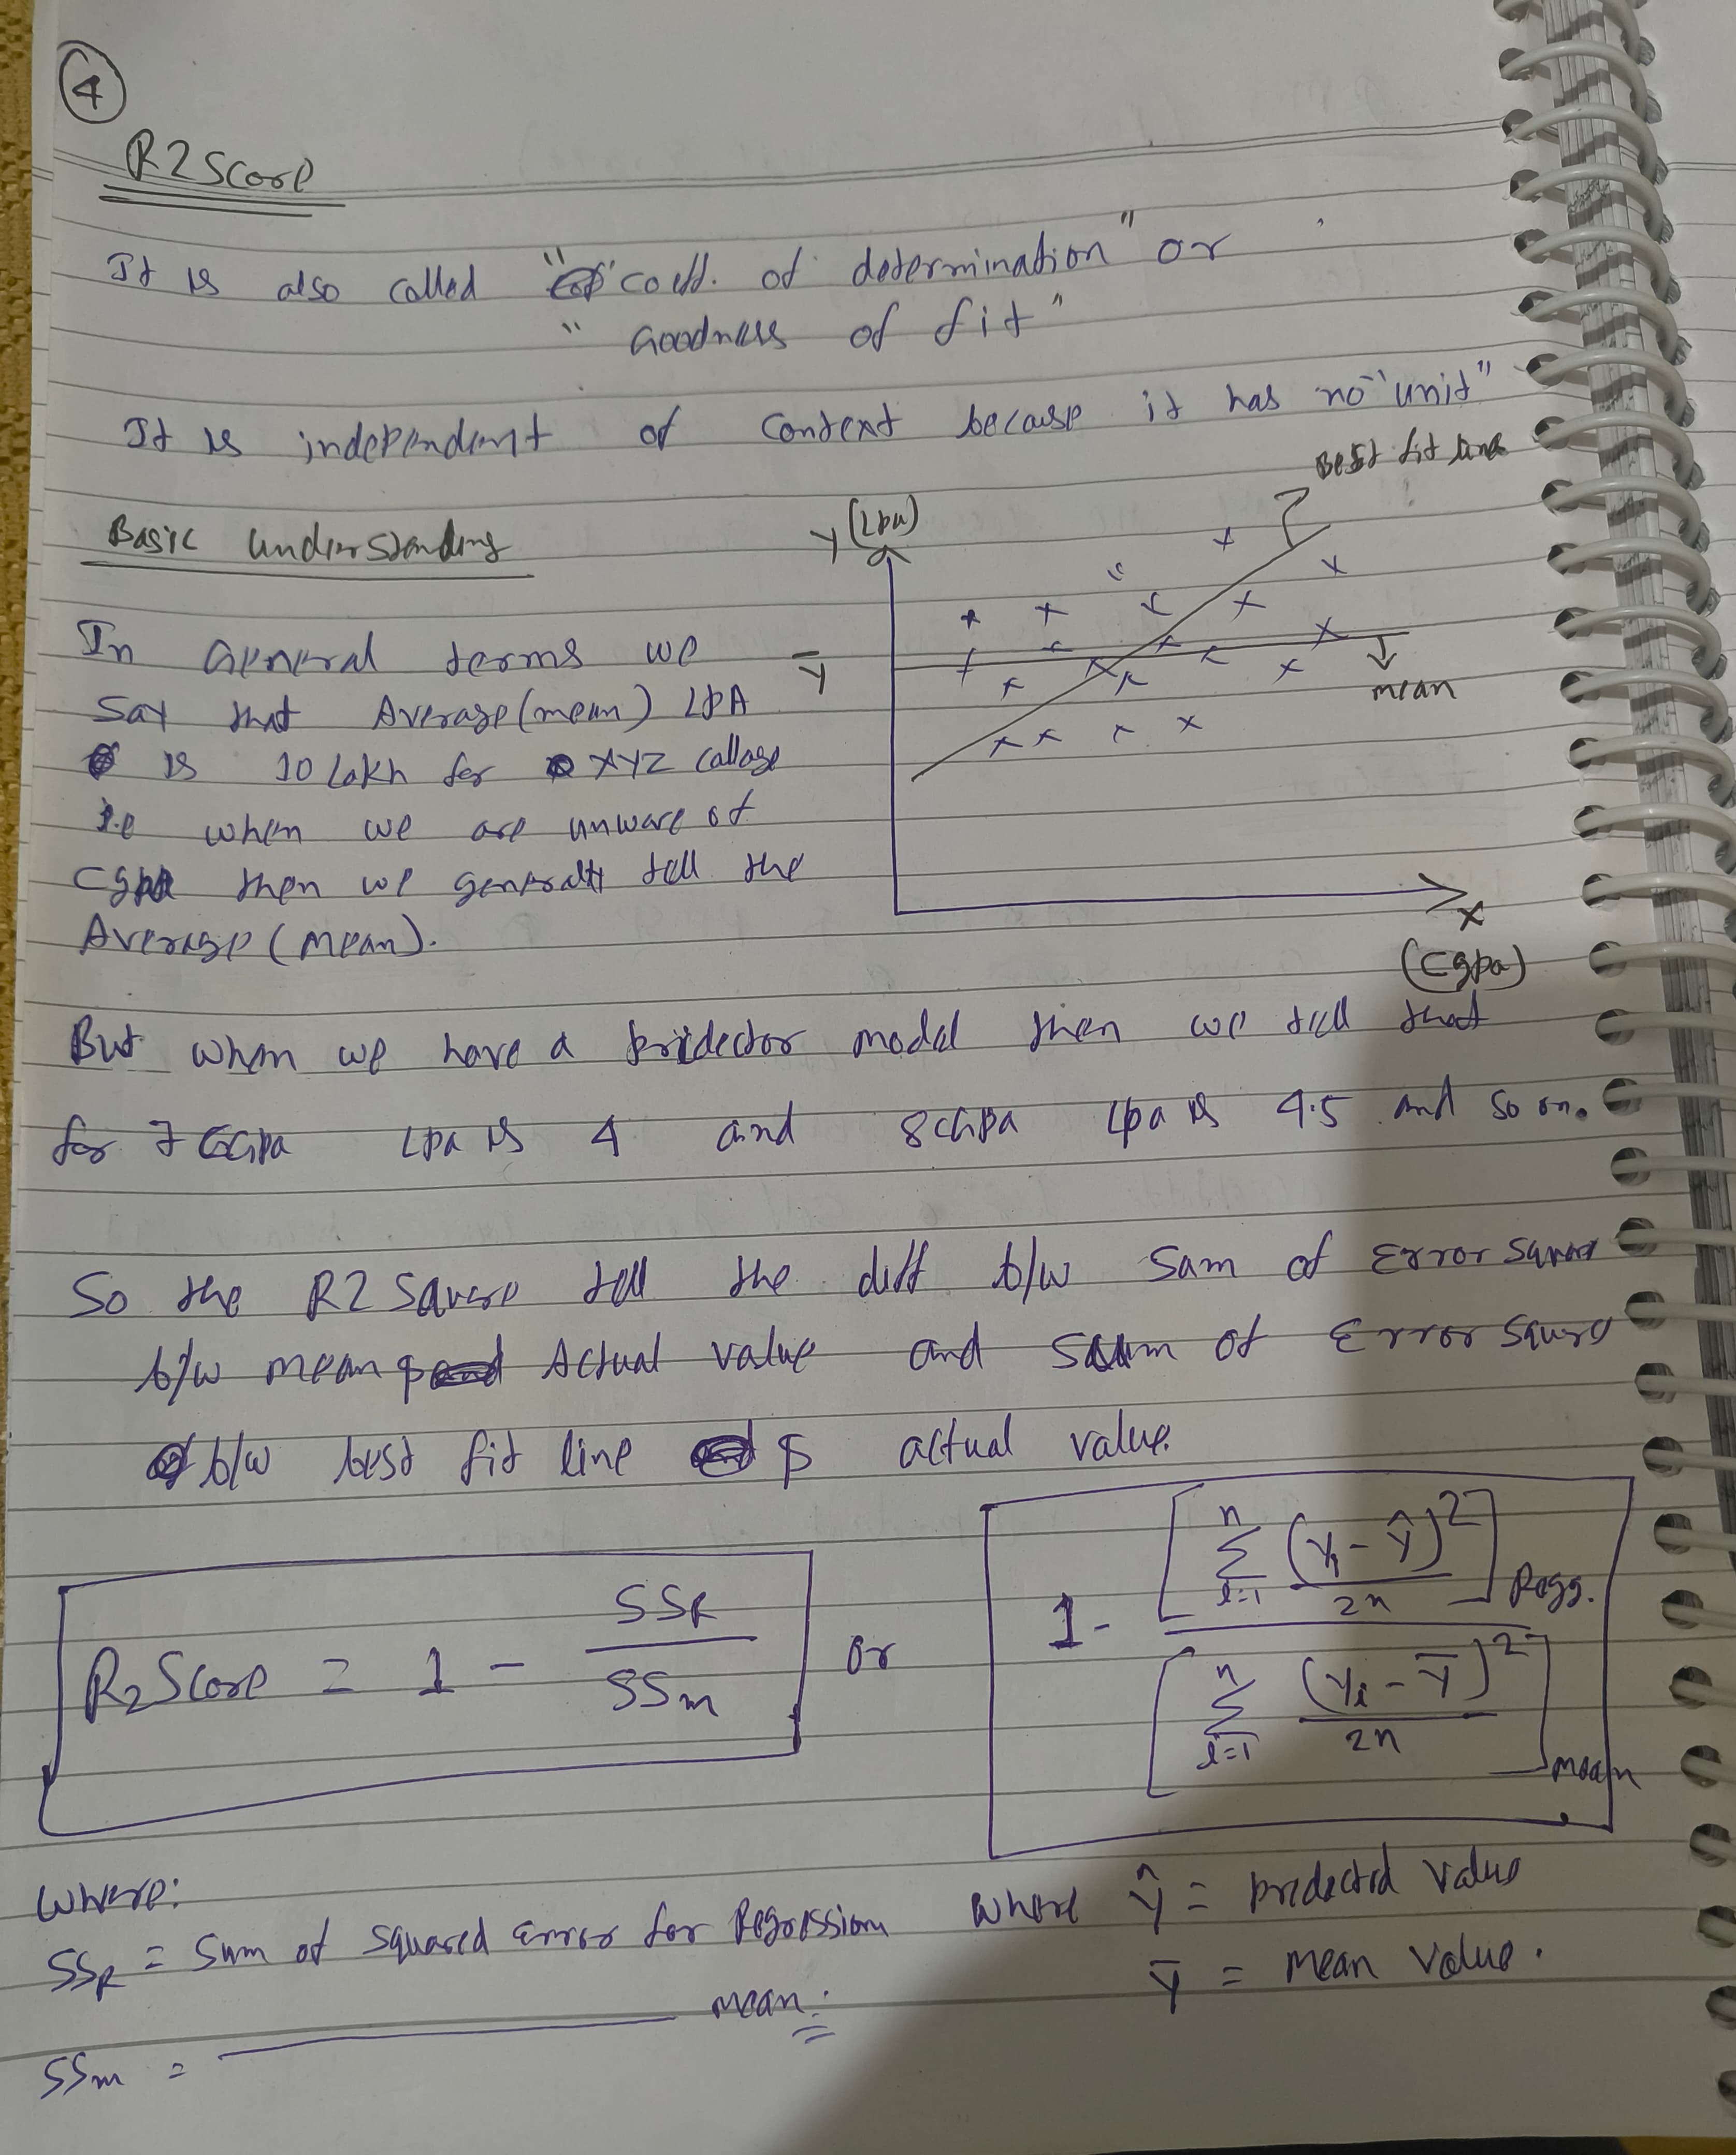 4
R2 Score
It is also called "coeff. of determination" or
"Goodness of fit"
It is independent of Context because it has no "unit"
Basic Understanding
Y (Lpa)
Best fit line
Y̅
mean
X
(Cgpa)
In General terms we
Say that Average (mean) LPA
is 10 Lakh for XYZ Callage
i.e when we are unware of
Cgpa then we generally tell the
Average (Mean).
But when we have a pridector model then we tell that
for 7 CGpa Lpa is 4 and 8 CGPA Lpa is 4.5 and so on.
So the R2 Square tell the diff b/w Sum of Error Square
b/w mean & Actual value and Sum of Error Square
b/w best fit line & actual value.
R2 Score = 1 - SSR / SSm or 1 - [n Σ i=1 (Yi - Ŷ)² / 2n] Regg. / [n Σ i=1 (Yi - Y̅)² / 2n] mean
Where:
SSR = Sum of Squared Error for Regression
SSm = ———— mean.
Where Ŷ = Predected Value
Y̅ = Mean Value.